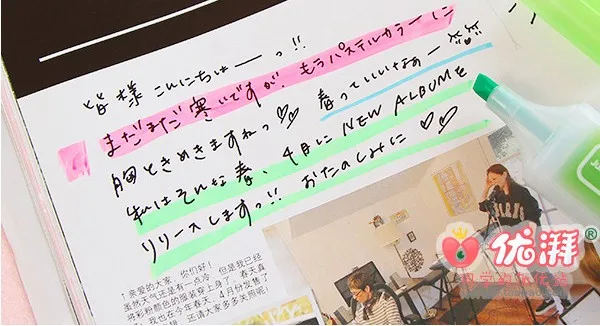 皆様 こんにちはーっ!!
まだまだ寒いですが、もうパステルカラーに
胸ときめきますねっ♡♡ 春っていいなぁー
私はそんな春、4月にNEW ALBUMを
リリースしますっ!! おたのしみに♡♡
↑亲爱的大家,你们好!
虽然天气还是有一点冷,但是我已经
将彩粉颜色的服装穿上身了。春天真
我也在今年春天,4月份发售了
还请大家多多关照呢!
优湃®